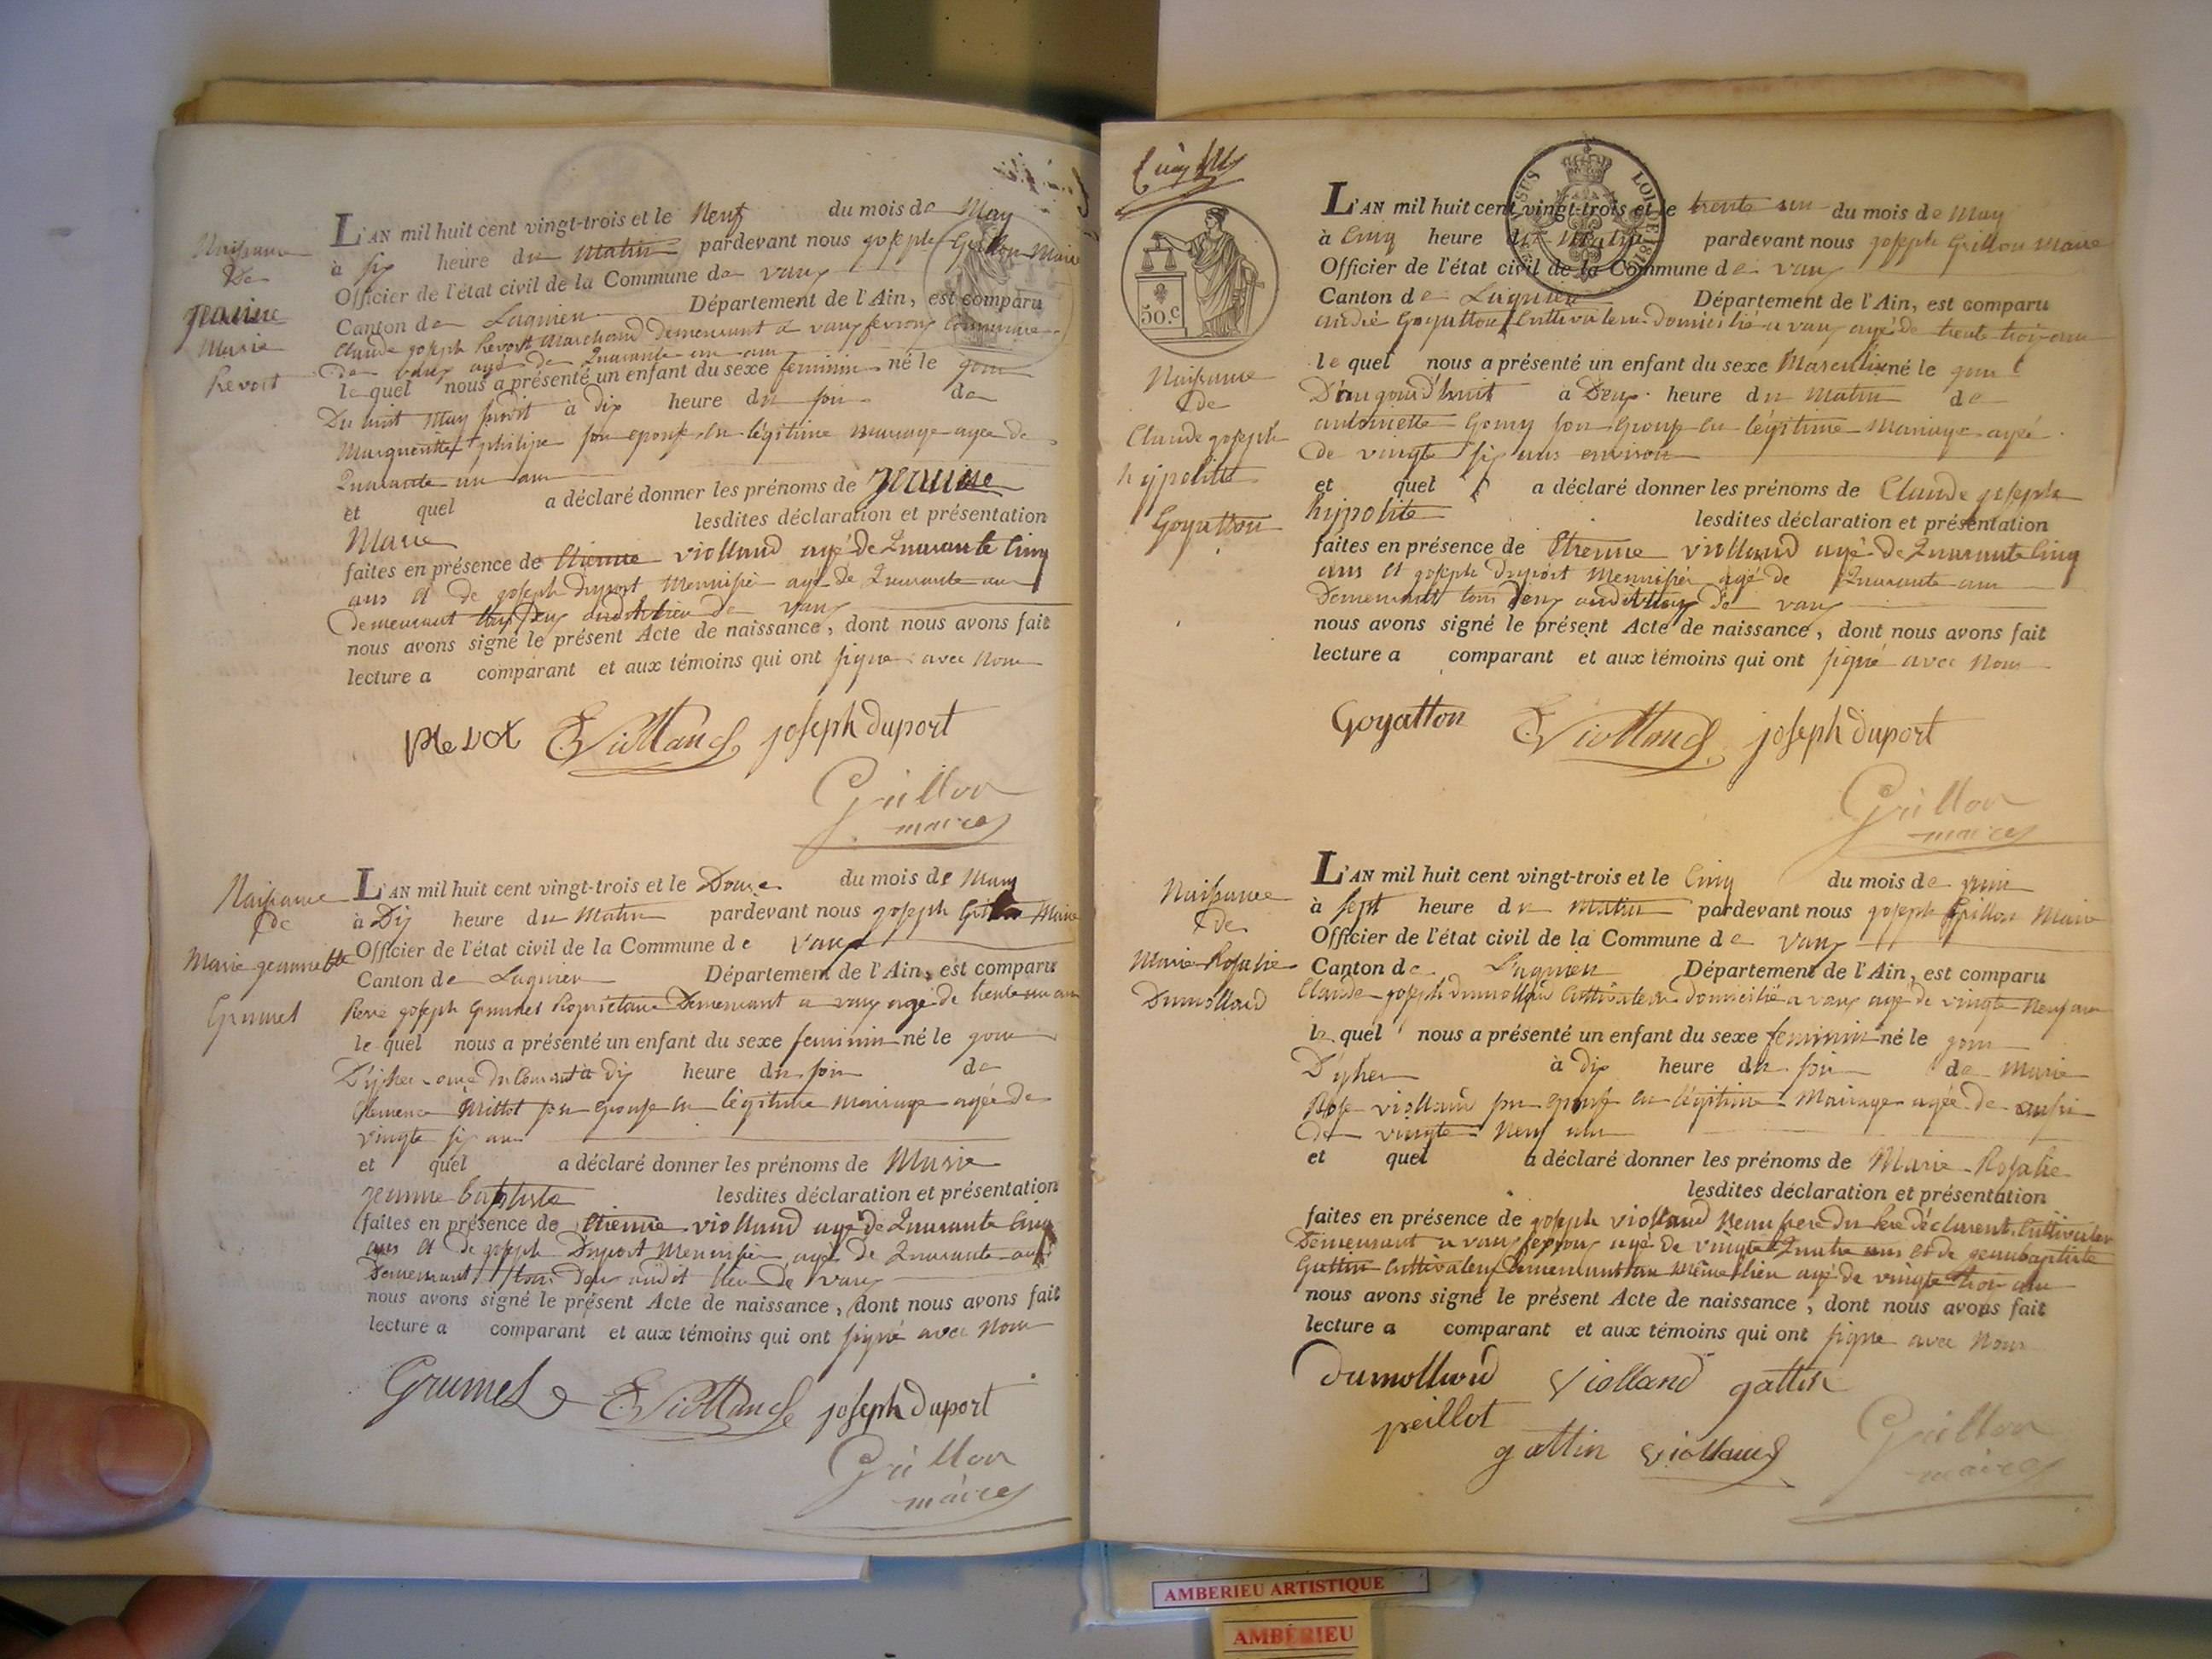 Naissance
De
Jeanne
Marie
Prevost
L'AN mil huit cent vingt-trois et le Neuf du mois de May
à six heure du Matin pardevant nous joseph Grillon Maire
Officier de l'état civil de la Commune de vaux
Canton de Lagnieu Département de l'Ain, est comparu
Claude joseph Prevost Marchand Demeurant a vaux fevroux Commune
De vaux agé de Quarante un an
le quel nous a présenté un enfant du sexe feminin né le jour
Du huit May susdit à dix heure du soir de
Margueritte philipe son epouse en légitime mariage agée de
Quarante un an
et quel a déclaré donner les prénoms de Jeanne
Marie lesdites déclaration et présentation
faites en présence de Etienne viollaud agé de Quarante Cinq
ans et de joseph Duport Menuisier agé de Quarante ans
demeurant tous deux audit lieu de vaux
nous avons signé le présent Acte de naissance, dont nous avons fait
lecture a comparant et aux témoins qui ont signé avec Nous
prevot E. Viollaud joseph duport
Grillon
maire
Naissance
de
Marie jeannette
Grumet
L'AN mil huit cent vingt-trois et le Douze du mois de May
à Dix heure du Matin pardevant nous joseph Grillon Maire
Officier de l'état civil de la Commune de Vaux
Canton de Lagnieu Département de l'Ain, est comparu
René joseph Grumet Propriétaire Demeurant a vaux agé de trente un an
le quel nous a présenté un enfant du sexe feminin né le jour
D'yher onze du Courant à dix heure du soir de
Clemence Millot son epouse en légitime mariage agée de
vingte six an
et quel a déclaré donner les prénoms de Marie
jeanne baptiste lesdites déclaration et présentation
faites en présence de Etienne viollaud agé de Quarante Cinq
ans et de joseph Duport Menuisier agé de Quarante ans
Demeurant tous deux audit lieu de vaux
nous avons signé le présent Acte de naissance, dont nous avons fait
lecture a comparant et aux témoins qui ont signé avec Nous
Grumet E. Viollaud joseph duport
Grillon
maire
50.c
Naissance
de
Claude joseph
hypolitte
Goyatton
L'AN mil huit cent vingt-trois et le trente un du mois de May
à Cinq heure du Matin pardevant nous joseph Grillon Maire
Officier de l'état civil de la Commune de vaux
Canton de Lagnieu Département de l'Ain, est comparu
andré Goyatton Cultivateur domicilié a vaux agé de trente trois ans
le quel nous a présenté un enfant du sexe Masculin né le jour
D'aujourd'huit à Deux heure du Matin de
antoinette Gomy son epouse en légitime Mariage agée
de vingte six ans environ
et quel a déclaré donner les prénoms de Claude joseph
hypolite lesdites déclaration et présentation
faites en présence de Etienne viollaud agé de Quarante Cinq
ans et joseph Duport Menuisier agé de Quarante ans
Demeurant tous deux audit lieu de vaux
nous avons signé le présent Acte de naissance, dont nous avons fait
lecture a comparant et aux témoins qui ont signé avec Nous
Goyatton E. Viollaud joseph duport
Grillon
maire
Naissance
de
Marie Rosalie
Dumollard
L'AN mil huit cent vingt-trois et le Cinq du mois de juin
à sept heure du matin pardevant nous joseph Grillon Maire
Officier de l'état civil de la Commune de vaux
Canton de Lagnieu Département de l'Ain, est comparu
Claude joseph dumollard Cultivateur domicilié a vaux agé de vingte Neuf ans
le quel nous a présenté un enfant du sexe feminin né le jour
D'yher à dix heure du soir de Marie
Rose viollaud son epouse en légitime Mariage agée de aussi
de vingte Neuf ans
et quel a déclaré donner les prénoms de Marie Rosalie
lesdites déclaration et présentation
faites en présence de joseph viollaud Beau frere du Pere déclarent Cultivateur
Demeurant a vaux fevroux agé de vingte Quatre ans et de jeanbaptiste
Gattin Cultivateur demeurant au même lieu agé de vingte trois ans
nous avons signé le présent Acte de naissance, dont nous avons fait
lecture a comparant et aux témoins qui ont signé avec Nous
Dumollard Viollaud gattin
peillot
gattin viollaud
Grillon
maire
AMBERIEU ARTISTIQUE
AMBÉRIEU